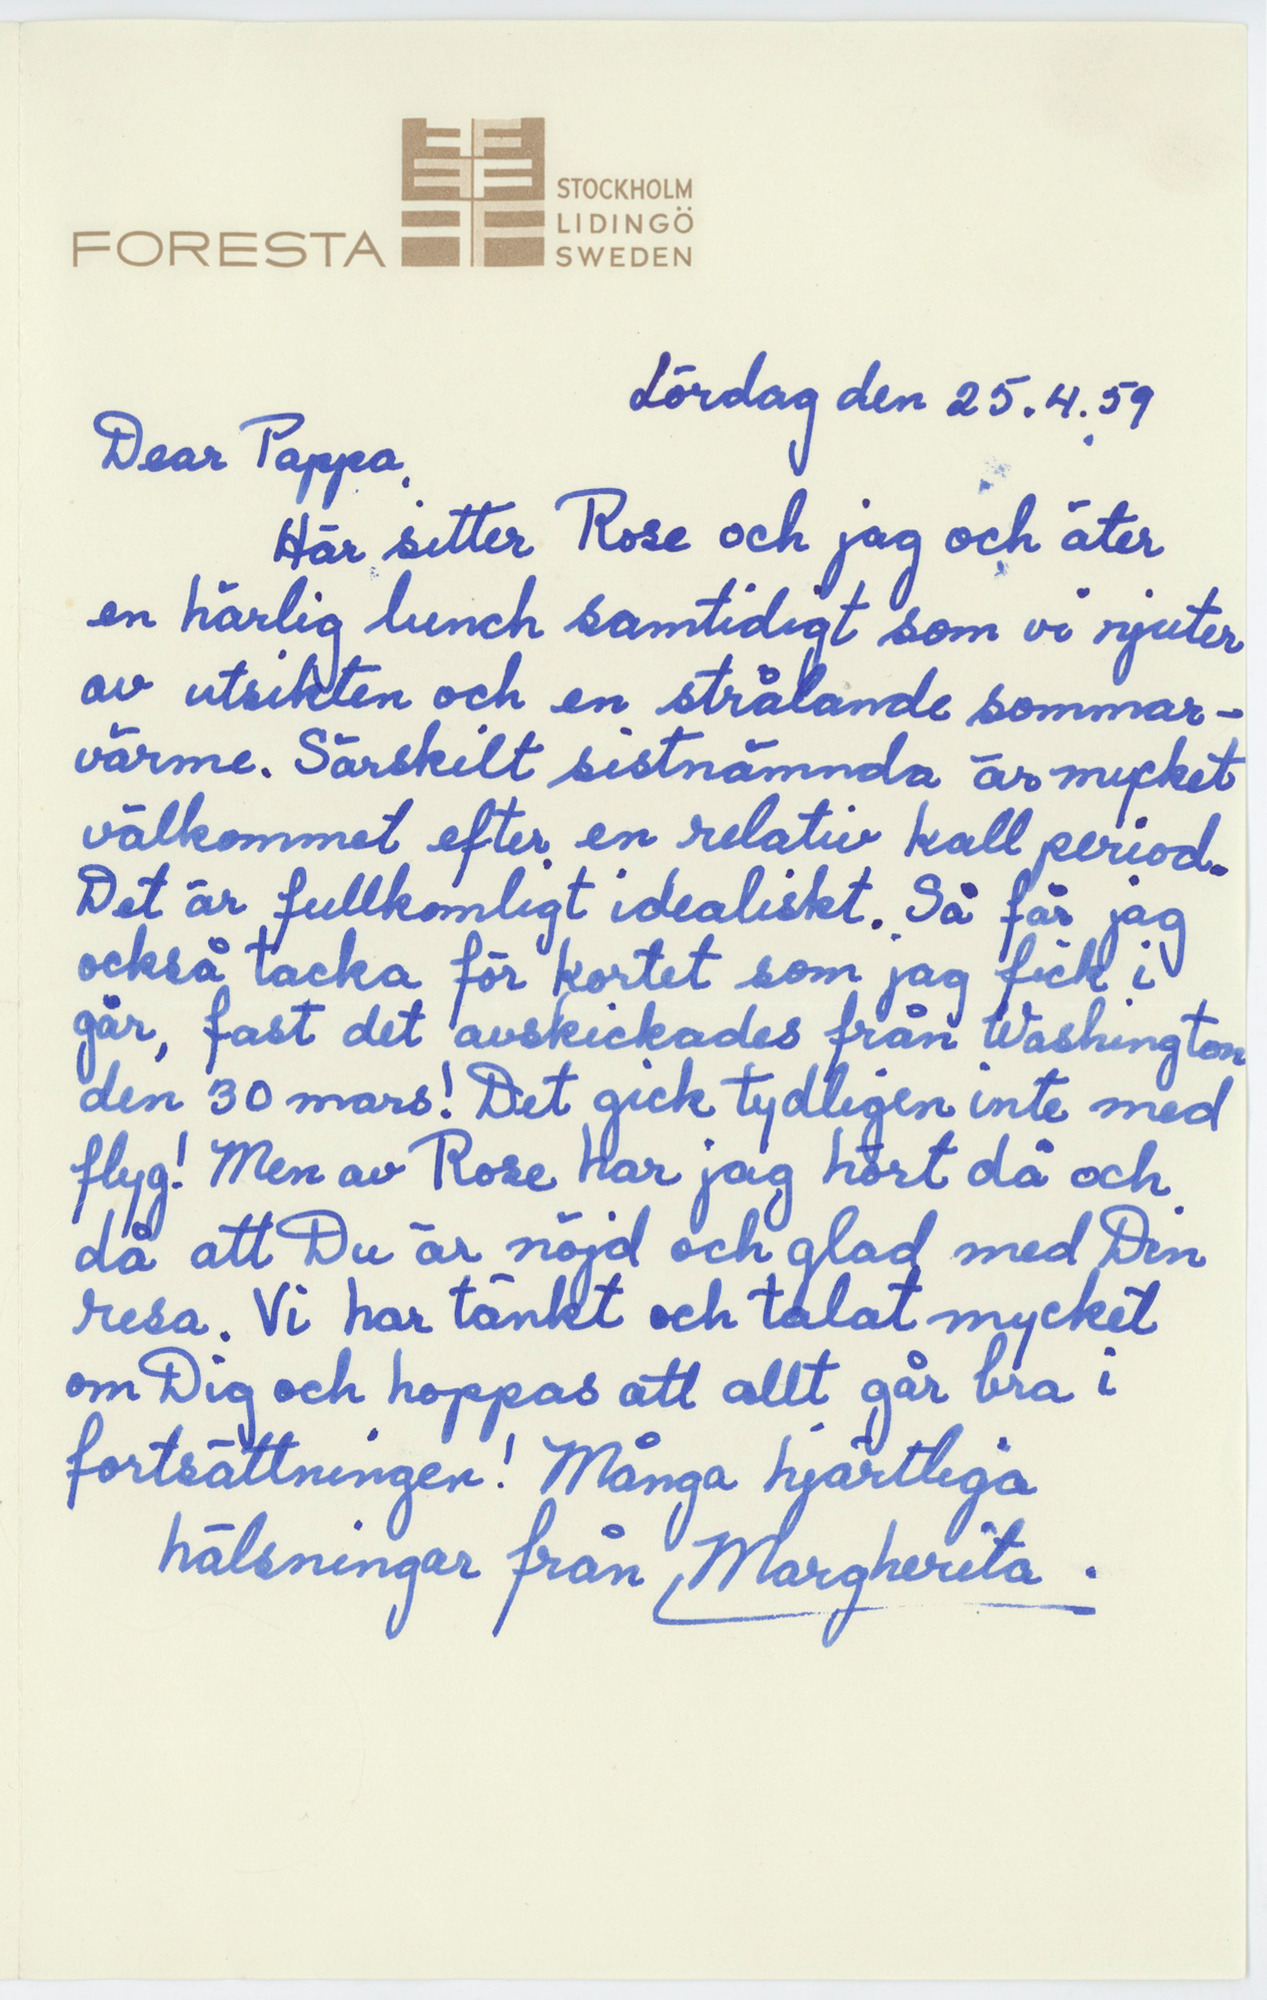 FORESTA
STOCKHOLM
LIDINGÖ
SWEDEN
Lördag den 25.4.59
Dear Pappa,
Här sitter Rose och jag och äter
en härlig lunch samtidigt som vi njuter
av utsikten och en strålande sommar-
värme. Särskilt sistnämnda är mycket
välkommet efter en relativ kall period.
Det är fullkomligt idealiskt. Så får jag
också tacka för kortet som jag fick i
går, fast det avskickades från Washington
den 30 mars! Det gick tydligen inte med
flyg! Men av Rose har jag hört då och
då att Du är nöjd och glad med Din
resa. Vi har tänkt och talat mycket
om Dig och hoppas att allt går bra i
fortsättningen! Många hjärtliga
hälsningar från Margherita.